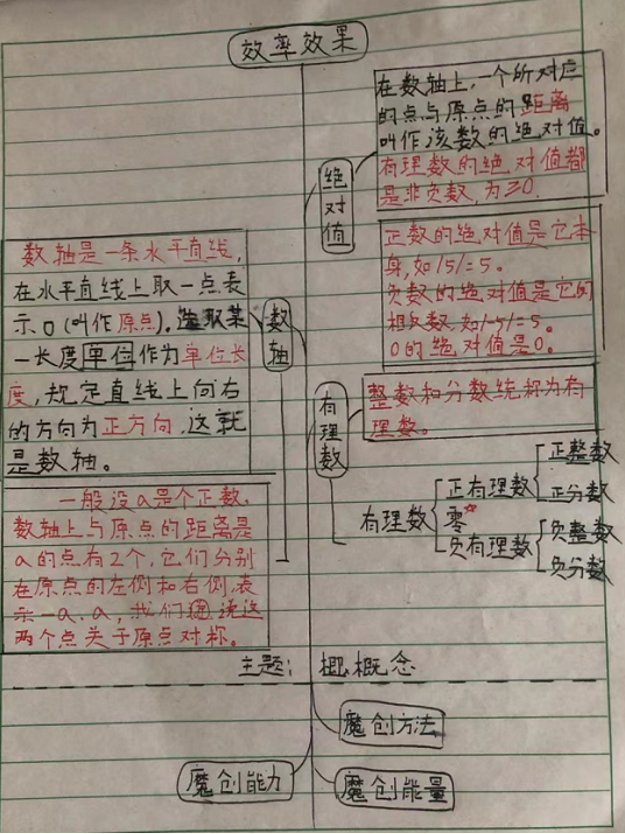 效率效果
在数轴上,一个所对应
的点与原点的距离
叫作该数的绝对值。
有理数的绝对值都
是非负数,为≥0.
绝对值
正数的绝对值是它本
身,如|5|=5。
负数的绝对值是它的
相反数,如|-5|=5。
0的绝对值是0。
数轴是一条水平直线,
在水平直线上取一点表
示0(叫作原点),选取某
一长度单位作为单位长
度,规定直线上向右
的方向为正方向,这就
是数轴。
数轴
有理数
整数和分数统称为有
理数。
有理数
正有理数
正整数
正分数
零
负有理数
负整数
负分数
一般设a是个正数,
数轴上与原点的距离是
a的点有2个,它们分别
在原点的左侧和右侧,表
示-a、a,我们说这
两个点关于原点对称。
主题: 概概念
魔创方法
魔创能力
魔创能量